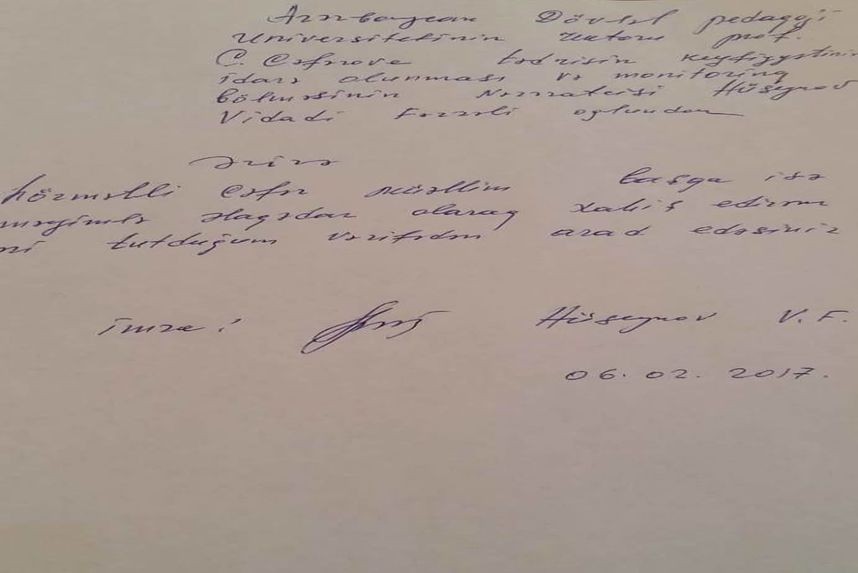 Azərbaycan Dövlət pedagoji
Universitetinin rektoru prof.
C. Cəfərova tədrisin keyfiyyətinin
idarə olunması və monitoring
bölməsinin Hüseynov
Vidadi Fərzəli oğlundan
ərizə
hörmətli Cəfər müəllim başqa işə
əlaqədar olaraq xahiş edirəm
tutduğum vəzifədən azad edəsiniz
imza: Hüseynov V. F.
06. 02. 2017.